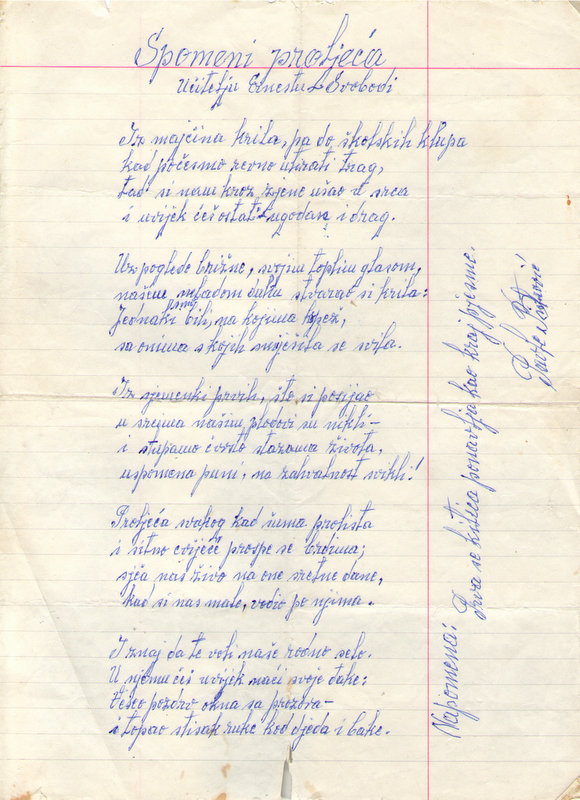 Spomeni proljeća
Učitelju Ernestu Svobodi
Iz majčina krila, pa do školskih klupa
kad počesmo revno utirati trag,
tad si nam kroz zjene ušao u srca
i uvijek ćeš ostat' ugodan i drag.
Uz poglede brižne, svojim toplim glasom,
našem mladom duhu stvarao si krila:
Jednaki smo bili, na kojima
sa onima s kojih smiješila se svila.
Iz sjemenki prvih, što si posijao
u srcima našim plodovi su nikli-
i stupamo čvrsto stazama života,
uspomena puni, na zahvalnost svikli!
Proljeća svakog kad šuma prolista
i sitno cvijeće prospe se brdima;
sjća nas živo na one sretne dane,
kad si nas male, vodio po njima.
I znaj da te voli naše rodno selo.
U njemu ćeš uvijek naći svoje đake:
Veseo pozdrav okna sa prozora-
i topao stisak ruke kod djeda i bake.
Napomena: Prva se kitica ponavlja kao kraj pjesme.
Pavle